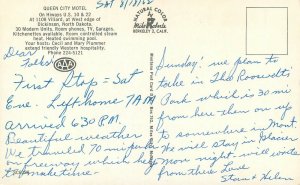 QUEEN CITY MOTEL
On Hiways U.S. 10 & 22
At 1108 Villard, at West edge of
Dickinson, North Dakota.
30 Modern Units. Room phones, TV, Garages.
Kitchenettes available. Room controlled steam
heat. Heated swimming pool.
Your hosts: Cecil and Mary Plummer,
extend friendly Western hospitality.
AAA
Sat
NATURAL COLOR
BERKELEY 2, CALIF.
Dear Folks
First Stop = Sat
Eve. Left home 7 AM
arrived 6:30 P.M.
Beautiful weather
We traveled 70 mi per
on freeway which helps
to make time.
Sunday: we plan to
take in The Roosevelt
Park which is 30 mi
from here then on up
to somewhere in Mont.
We will stay in Glacier
Mon night - will write
from there Love
Stan & Helen